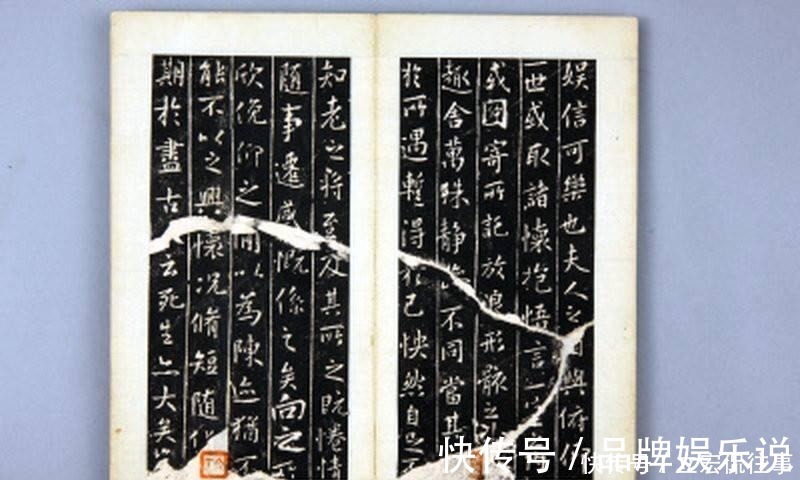 娱信可樂也夫人之相與俯仰
一世或取諸懷抱悟言一室
或因寄所託放浪形骸之
趣舍萬殊靜躁不同當其
於所遇蹔得於己怏然自足不
知老之將至及其所之既惓情
隨事遷感慨係之矣向之所
欣俛仰之間以為陳迹猶不
能不以之興懷況脩短隨化
期於盡古人云死生亦大矣
快传号 / 品牌娱乐说